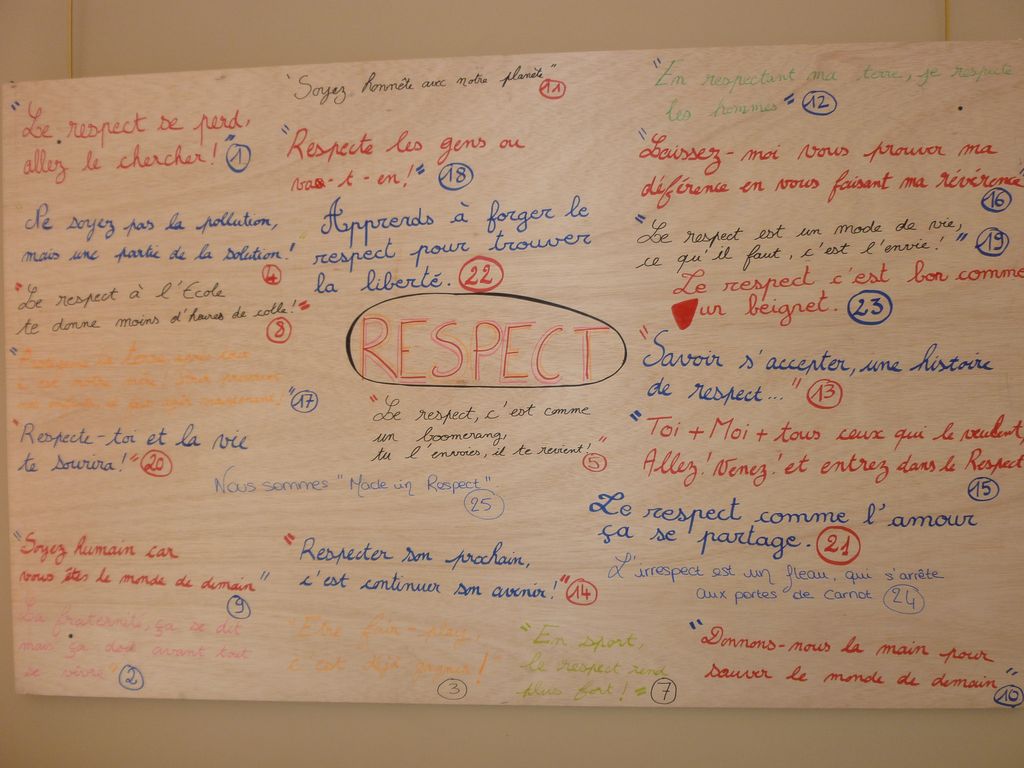 "Soyez honnête avec notre planète"
11
"En respectant ma terre, je respecte
les hommes" 12
"Le respect se perd,
allez le chercher!" 1
"Respecte les gens ou
vas-t-en!" 18
"Laissez-moi vous prouver ma
déférence en vous faisant ma révérence"
16
Ne soyez pas la pollution,
mais une partie de la solution!"
4
Apprends à forger le
respect pour trouver
la liberté. 22
"Le respect est un mode de vie,
ce qu'il faut, c'est l'envie!" 19
"Le respect à l'Ecole
te donne moins d'heures de colle!"
8
Le respect c'est bon comme
un beignet. 23
RESPECT
"Savoir s'accepter, une histoire
de respect..." 13
17
"Le respect, c'est comme
un boomerang,
tu l'envoies, il te revient!"
5
"Respecte-toi et la vie
te sourira!" 20
"Toi + Moi + tous ceux qui le veulent,
Allez! Venez! et entrez dans le Respect
15
Nous sommes "Made in Respect"
25
Le respect comme l'amour
ça se partage. 21
"Soyez humain car
vous êtes le monde de demain"
9
"Respecter son prochain,
c'est continuer son avenir!" 14
L'irrespect est un fleau, qui s'arrête
aux portes de Carnot 24
La fraternité, ça se dit
mais ça doit avant tout
se vivre" 2
Etre fair-play,
c'est déjà gagner!"
3
"En sport,
le respect rend
plus fort!" 7
"Donnons-nous la main pour
sauver le monde de demain"
10